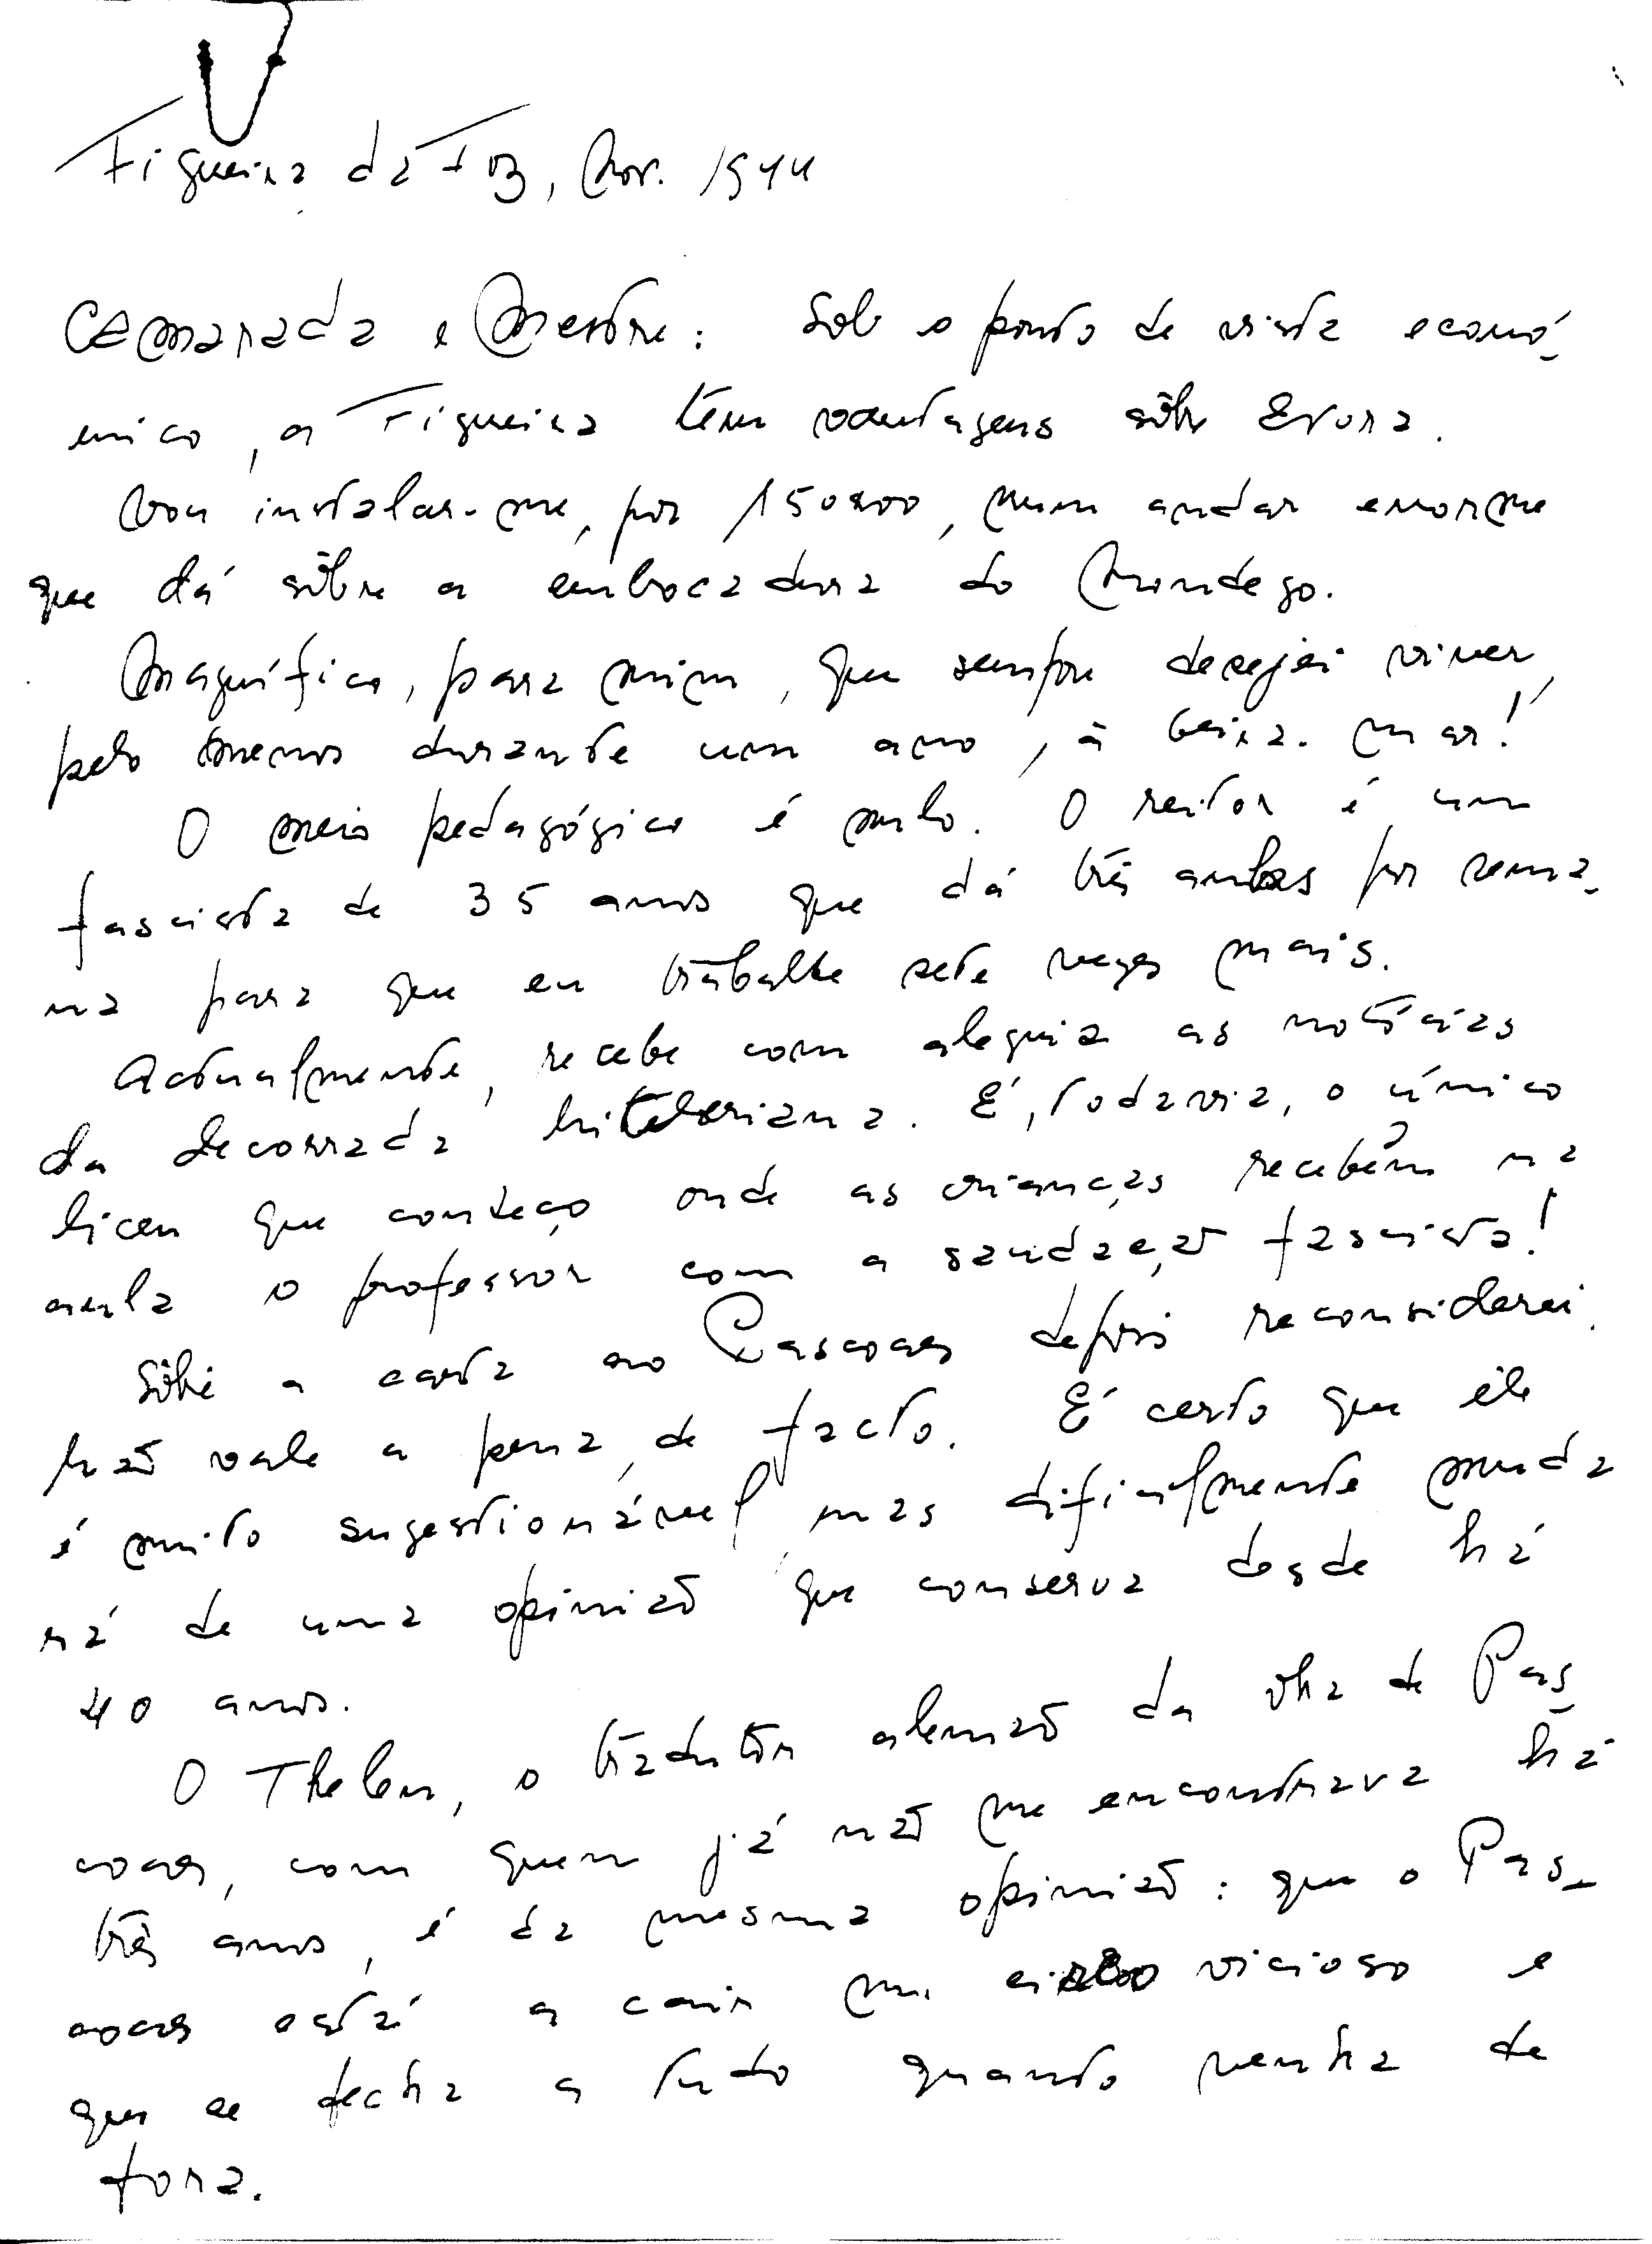 Figueira da Foz, Nov. 1944
Camarada e Mestre: Sob o ponto de vista econó-
mico, a Figueira tem vantagens sôbre Evora.
Vou instalar-me, por 150$00, num andar enorme
que dá sôbre a embocadura do Mondego.
Magnífico, para mim, que sempre desejei viver,
pelo menos durante um ano, à beira-mar!
O meio pedagógico é nulo. O reitor é um
fascista de 35 anos que dá três aulas por sema-
na para que eu trabalhe sete vezes mais.
Actualmente, recebe com alegria as notícias
da decorrada hitleriana. É, todavia, o único
liceu que conheço onde as crianças recebem na
aula o professor com a saudação fascista!
Sôbre a carta ao Pascoaes depois reconsiderei.
Não vale a pena, de facto. É certo que êle
é muito sugestionável, mas dificilmente muda
rá de uma opinião que conserva desde há
40 anos.
O Thelen, o tradutor alemão da obra de Pas-
coaes, com quem já não me encontrava há
três anos, é da mesma opinião: que o Pas-
coaes está a cair num círculo vicioso e
que se fecha a tudo quanto venha de
fora.